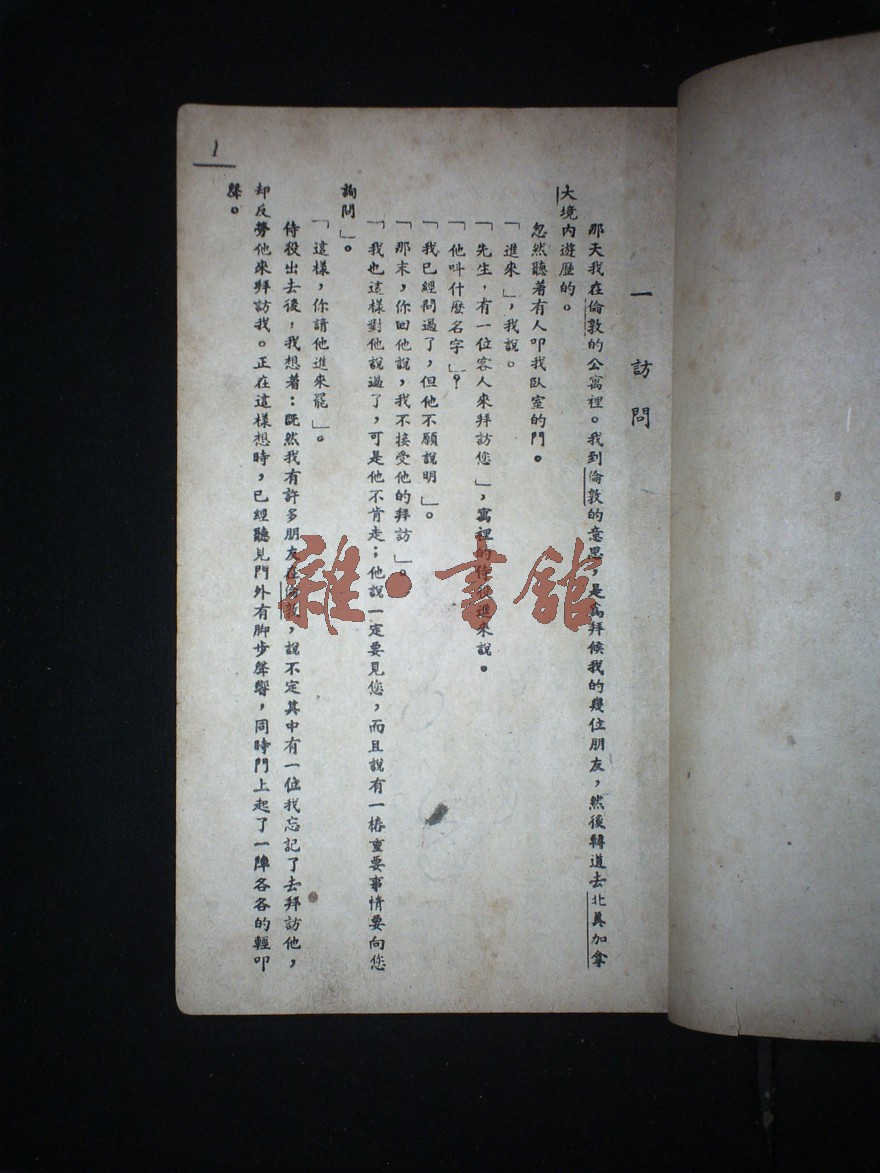 一 訪問
那天我在倫敦的公寓裡。我到倫敦的意思，是爲拜候我的幾位朋友，然後轉道去北美加拿
大境內遊歷的。
忽然聽著有人叩我臥室的門。
「進來」，我說。
「先生，有一位客人來拜訪您」，寓裡的侍役進來說。
「他叫什麽名字」？
「我已經問過了，但他不願說明」。
「那末，你回他說，我不接受他的拜訪」。
「我也這樣對他說過了，可是他不肯走；他說一定要見您，而且說有一樁重要事情要向您
詢問」。
「這樣，你請他進來罷」。
侍役出去後，我想着：既然我有許多朋友在倫敦，說不定其中有一位我忘記了去拜訪他，
却反勞他來拜訪我。正在這樣想時，已經聽見門外有脚步聲響，同時門上起了一陣各各的輕叩
聲。
1
雜·書舘